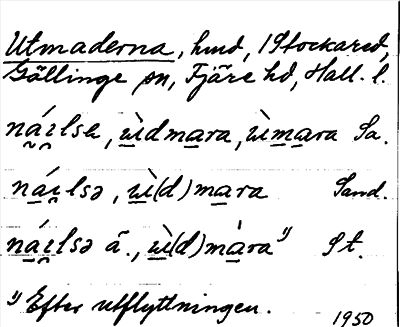 Utmaderna, hmd, 1 Stockared,
Gällinge sn, Fjäre hd, Hall. l.
náilsə, ẁidmara, ẁimara Sa.
náilsə, ẁi(d)mara Sand.
náilsə ä., ẁi(d)màra¹⁾ St.
¹⁾ Efter utflyttningen.
1950